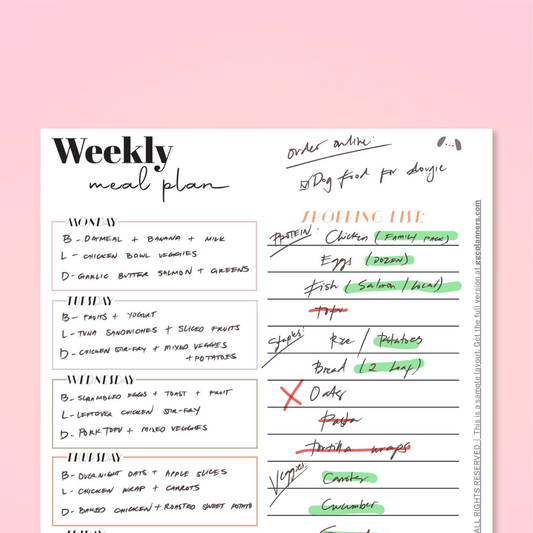 Weekly
meal plan
order online:
Dog food for dougie
MONDAY
B - OATMEAL + BANANA + MILK
L - CHICKEN BOWL VEGGIES
D - GARLIC BUTTER SALMON + GREENS
TUESDAY
B - FRUITS + YOGURT
L - TUNA SANDWICHES + SLICED FRUITS
D - CHICKEN STIR-FRY + MIXED VEGGIES
+ POTATOES
WEDNESDAY
B - SCRAMBLED EGGS + TOAST + FRUIT
L - LEFTOVER CHICKEN STIR-FRY
D - PORK TOFU + MIXED VEGGIES
THURSDAY
B - OVERNIGHT OATS + APPLE SLICES
L - CHICKEN WRAP + CARROTS
D - BAKED CHICKEN + ROASTED SWEET POTATO
SHOPPING LIST:
PROTEIN: Chicken (FAMILY PACK)
Eggs (DOZEN)
Fish (Salmon / Local)
Tofu
Staples: Rice / Potatoes
Bread (2 Loaf)
X Oats
Pasta
Tortilla wraps
Veggies: Carrots
Cucumber
ALL RIGHTS RESERVED | This is a sample layout. Get the full version at ggcplanners.com